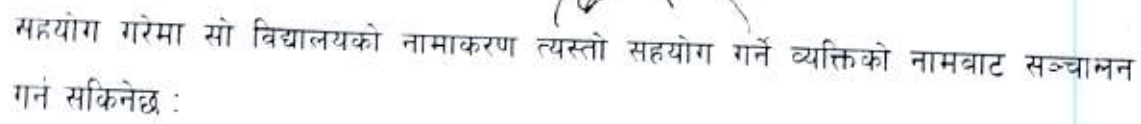 सहयोग गरेमा सो विद्यालयको नामाकरण त्यस्तो सहयोग गर्ने व्यक्तिको नामबाट सञ्चालन
गर्न सकिनेछ :